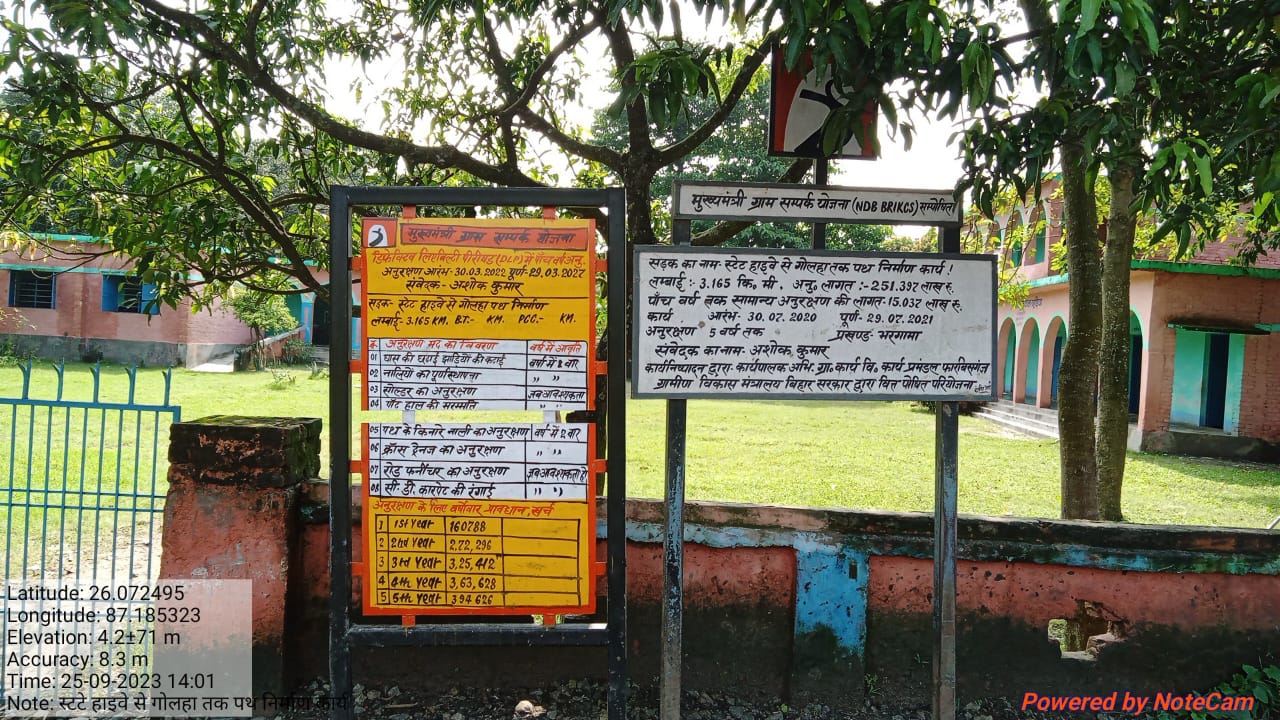 मुख्यमंत्री ग्राम सम्पर्क योजना
डिफेक्टिव लिएबिल्टी पीरीयड (DLP) में पाँच वर्ष अनु.
अनुरक्षण आरंभ- 30.03.2022 पूर्ण- 29.03.2027
संवेदक- अशोक कुमार
सड़क- स्टेट हाइवे से गोलहा पथ निर्माण
लम्बाई- 3.165 KM. B.T.- KM. PCC.- KM.
क्र. अनुरक्षण मद का विवरण वर्ष में आवृति
01 घास की छटाई झाड़ियों की कटाई वर्ष में 2 वार
02 नालियों का पूर्णस्थापना " "
03 सोल्डर का अनुरक्षण जब आवश्यकता
04 पॉट हाल की मरम्मति " "
05 पथ के किनारे नाली का अनुरक्षण वर्ष में 2 वार
06 क्रॉस ड्रेनज का अनुरक्षण " "
07 रोड फर्नीचर का अनुरक्षण जब आवश्यकता हो
08 सी. डी. कारपेट की रंगाई " "
अनुरक्षण के लिए वर्षवार प्रावधान खर्च
1 1st Year 160788
2 2nd Year 2,72,296
3 3rd Year 3,25,412
4 4th Year 3,63,628
5 5th Year 394626
मुख्यमंत्री ग्राम सम्पर्क योजना (NDB BRIKCS) सम्पोषित
सड़क का नाम- स्टेट हाइवे से गोलहा तक पथ निर्माण कार्य!
लम्बाई :- 3.165 कि. मी. अनु. लागत :- 251.397 लाख रु.
पाँच वर्ष तक सामान्य अनुरक्षण की लागत- 15.037 लाख रु.
कार्य आरंभ- 30.07.2020 पूर्ण- 29.07.2021
अनुरक्षण 5 वर्ष तक प्रखण्ड- भरगामा
संवेदक का नाम- अशोक कुमार
कार्यनिष्पादन द्वारा कार्यपालक अभि. ग्रा. कार्य वि. कार्य प्रमंडल फारबिसगंज
ग्रामीण विकास मंत्रालय बिहार सरकार द्वारा वित पोषित परियोजना
Latitude: 26.072495
Longitude: 87.185323
Elevation: 4.2±71 m
Accuracy: 8.3 m
Time: 25-09-2023 14:01
Note: स्टटे हाइवे से गोलहा तक पथ निर्माण कार्य
Powered by NoteCam